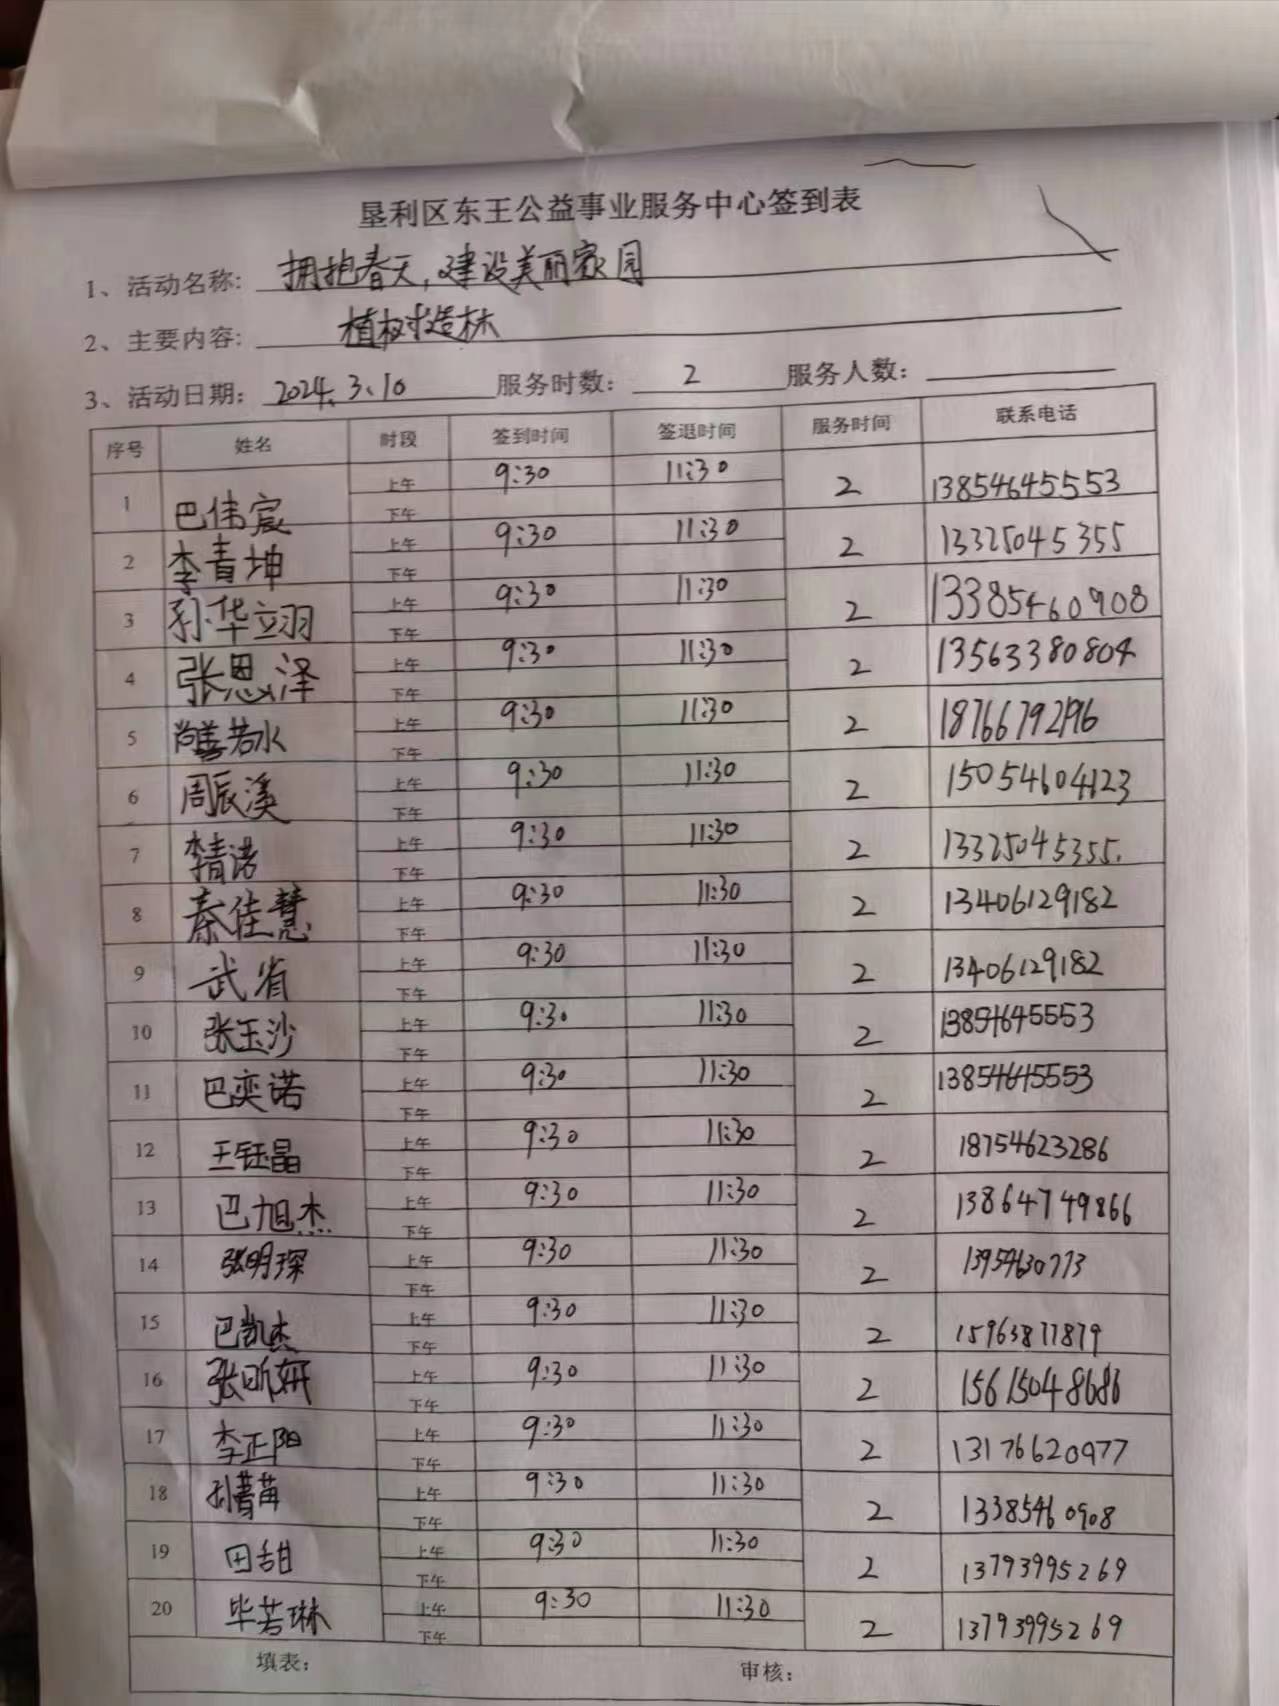 垦利区东王公益事业服务中心签到表
1、活动名称: 拥抱春天,建设美丽家园
2、主要内容: 植树造林
3、活动日期: 2024.3.10 服务时数: 2 服务人数:
序号 姓名 时段 签到时间 签退时间 服务时间 联系电话
1 巴伟宸 上午 9:30 11:30 2 13854645553
下午
2 李青坤 上午 9:30 11:30 2 13325045355
下午
3 孙华立羽 上午 9:30 11:30 2 13385460908
下午
4 张恩泽 上午 9:30 11:30 2 13563380804
下午
5 尚善若水 上午 9:30 11:30 2 18766792196
下午
6 周辰溪 上午 9:30 11:30 2 15054604123
下午
7 李清诺 上午 9:30 11:30 2 13325045355
下午
8 秦佳慧 上午 9:30 11:30 2 13406129182
下午
9 武省 上午 9:30 11:30 2 13406129182
下午
10 张玉沙 上午 9:30 11:30 2 13854645553
下午
11 巴奕诺 上午 9:30 11:30 2 13854645553
下午
12 王钰晶 上午 9:30 11:30 2 18754623286
下午
13 巴旭杰 上午 9:30 11:30 2 13864749866
下午
14 张明琛 上午 9:30 11:30 2 13954630773
下午
15 巴凯杰 上午 9:30 11:30 2 15963877879
下午
16 张昕妍 上午 9:30 11:30 2 15615048686
下午
17 李正阳 上午 9:30 11:30 2 13176620977
下午
18 孙菁苒 上午 9:30 11:30 2 13385460908
下午
19 田甜 上午 9:30 11:30 2 13793995269
下午
20 毕若琳 上午 9:30 11:30 2 13793995269
下午
填表: 审核: